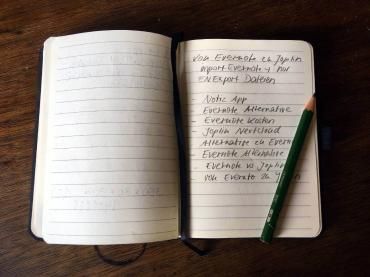 Von Evernote zu Joplin
import Evernote → nur
ENExport Dateien
- Notiz App
- Evernote Alternative
- Evernote kosten
- Joplin Nextcloud
- Alternative zu Evern
- Evernote Alternative
- Evernote vs Joplin
- von Evernote zu